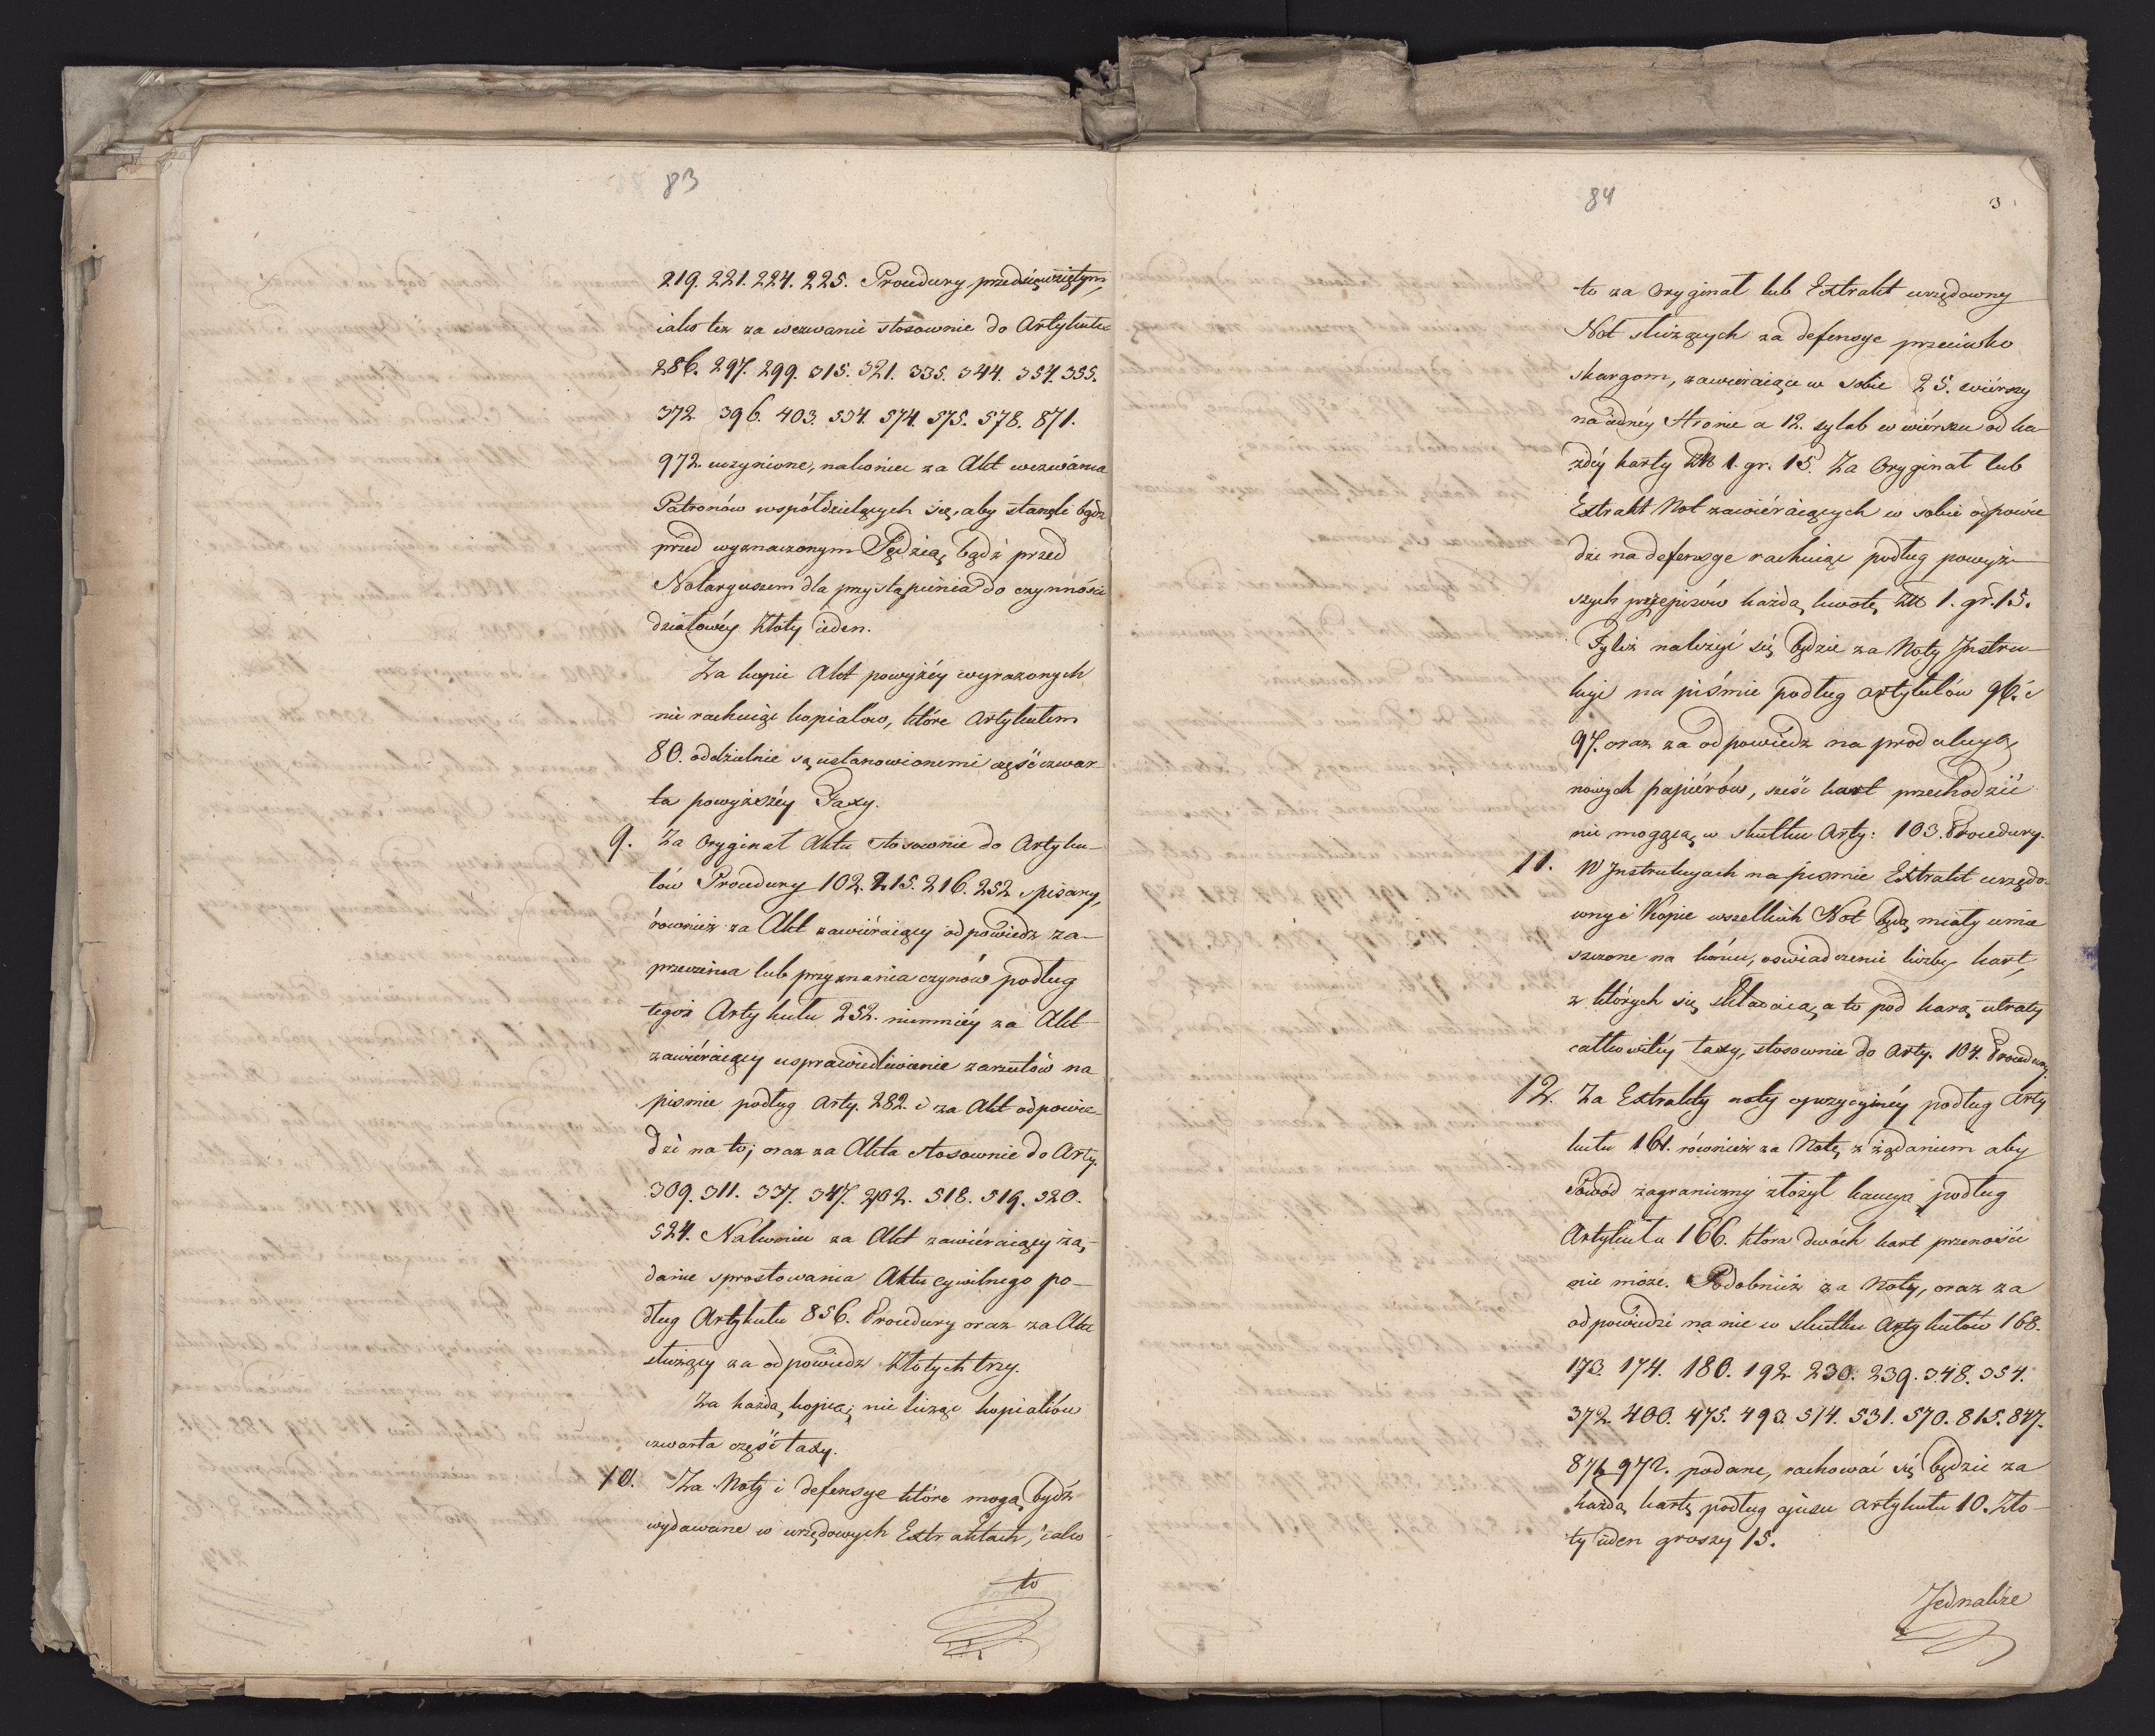 83
219. 221. 224. 225. Procedury przedsięwziętym,
iako też za wezwanie stosownie do Artykułu
286. 297. 299. 315. 321. 335. 344. 354. 355.
372 396. 403. 534. 574. 575. 578. 871.
972. uczynione, nakoniec za Akt wezwania
Patronów współdzielących się, aby stanęli bądź
przed wyznaczonym Sędzią, bądź przed
Notaryuszem dla przystąpienia do czynności
działowéy Złoty ieden.
Za kopie Akt powyżéy wyrażonych
nie rachuiąc kopiałow, które Artykułem
80. oddzielnie są ustanowionemi część czwar
ta powyższéy Taxy.
9. Za Oryginał Aktu stosownie do Artyku-
łów Procedury 102. 215. 216. 252 spisany,
również za Akt zawiéraiący odpowiedz za-
przeczenia lub przyznania czynów podług
tegoż Artykułu 252. niemniéy za Akt
zawiéraiący usprawiedliwienie zarzutów na
pismie podług Arty. 282. i za Akt odpowie-
dzi na to; oraz za Akta stosownie do Arty.
309. 311. 337. 347. 402. 518. 519. 520.
524. Nakoniec za Akt zawiéraiący żą-
danie sprostowania Aktu cywilnego po-
dług Artykułu 856. Procedury oraz za Akt
służący za odpowiedz Złotych trzy.
Za każdą kopią; nie licząc kopiałów
czwarta część taxy.
10. Za Noty i defensye które mogą bydź
wydawane w urzędowych Extraktach, iako
to
84
3
to za Oryginał lub Extrakt urzędowny
Not służących za defensye przeciwko
skargom, zawieraiące w sobie 25. wiérszy
na iednéy stronie a 12. sylab w wiérszu od ka-
żdéy karty Zł 1. gr. 15. Za Oryginał lub
Extrakt Not zawiéraiących w sobie odpowie
dzi na defensye rachuiąc podług powyż-
szych przepisów każdą kwotę Zł 1. gr. 15.
Tyleż należyć się będzie za Noty Instru-
kcyi na piśmie podług artykułów 96. i
97. oraz za odpowiedz na produkcyą
nowych papiérów, sześć kart przechodzić
nie mogącą w skutku Arty: 103. Procedury.
11. W Instrukcyach na pismie Extrakt urzędo-
wny i Kopie wszelkich Not będą miały umie
szczone na końcu, oswiadczenie liczby kart,
z których się składaią, a to pod karą utraty
całkowitéy taxy, stosownie do Arty. 104. Procedury.
12. Za Extrakty noty opozycyinéy podług Arty
kułu 161. również za Notę z żądaniem aby
Powód zagraniczny złożył kaucyą podług
Artykułu 166. która dwóch kart przenosić
nie może. Podobnież za Noty, oraz za
odpowiedzi na nie w skutku Artykułów 168.
173. 174. 180. 192. 230. 239. 348. 354.
372. 400. 475. 493. 514. 531. 570. 815. 847.
871. 972. podane, rachować się będzie za
każdą kartę podług opisu artykułu 10. Zło-
ty ieden groszy 15.
Jednakże